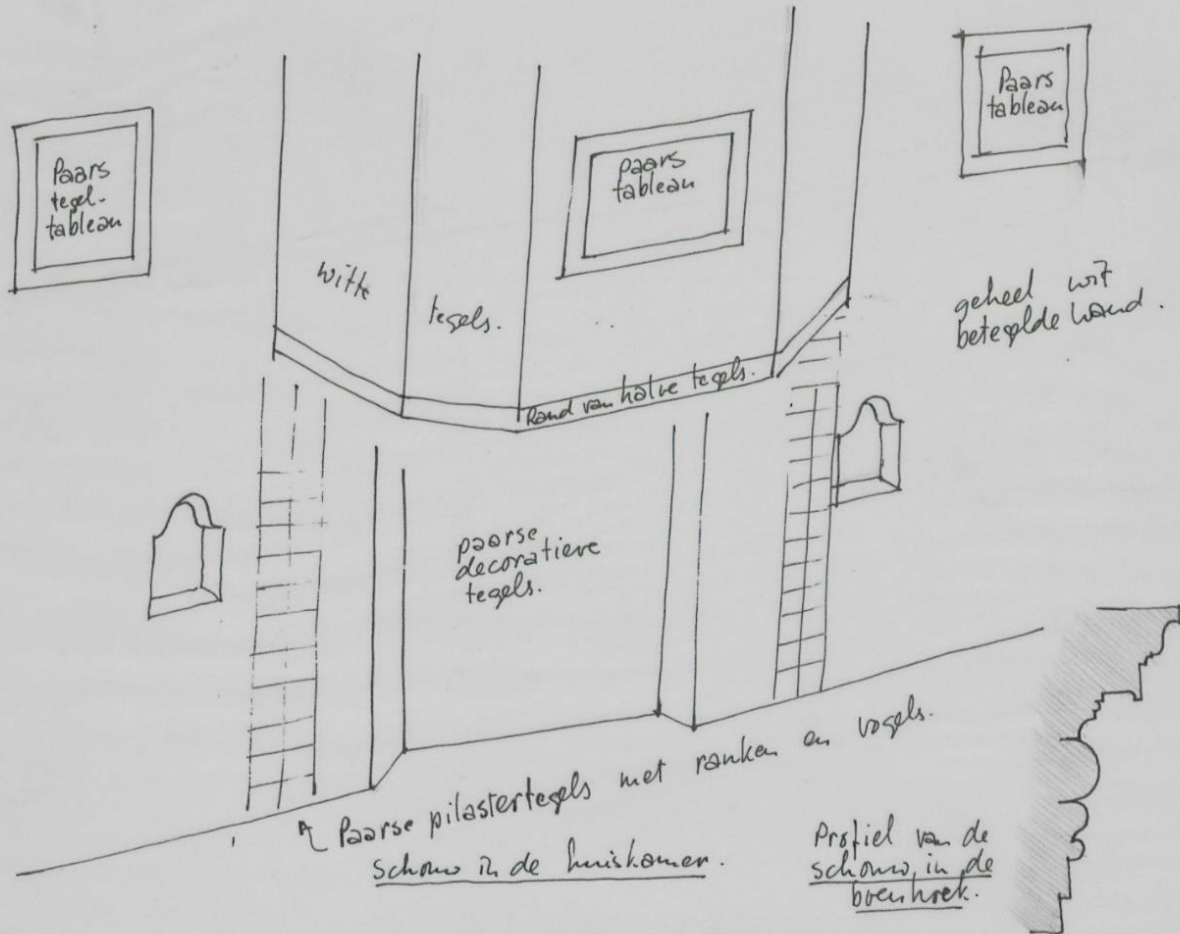 Paars
tegel-
tableau
paars
tableau
Paars
tableau
witte
tegels.
geheel wit
betegelde wand.
Rand van halve tegels.
paarse
decoratieve
tegels.
Paarse pilastertegels met ranken en vogels.
schouw in de huiskamer.
Profiel van de
schouw in de
boenhoek.